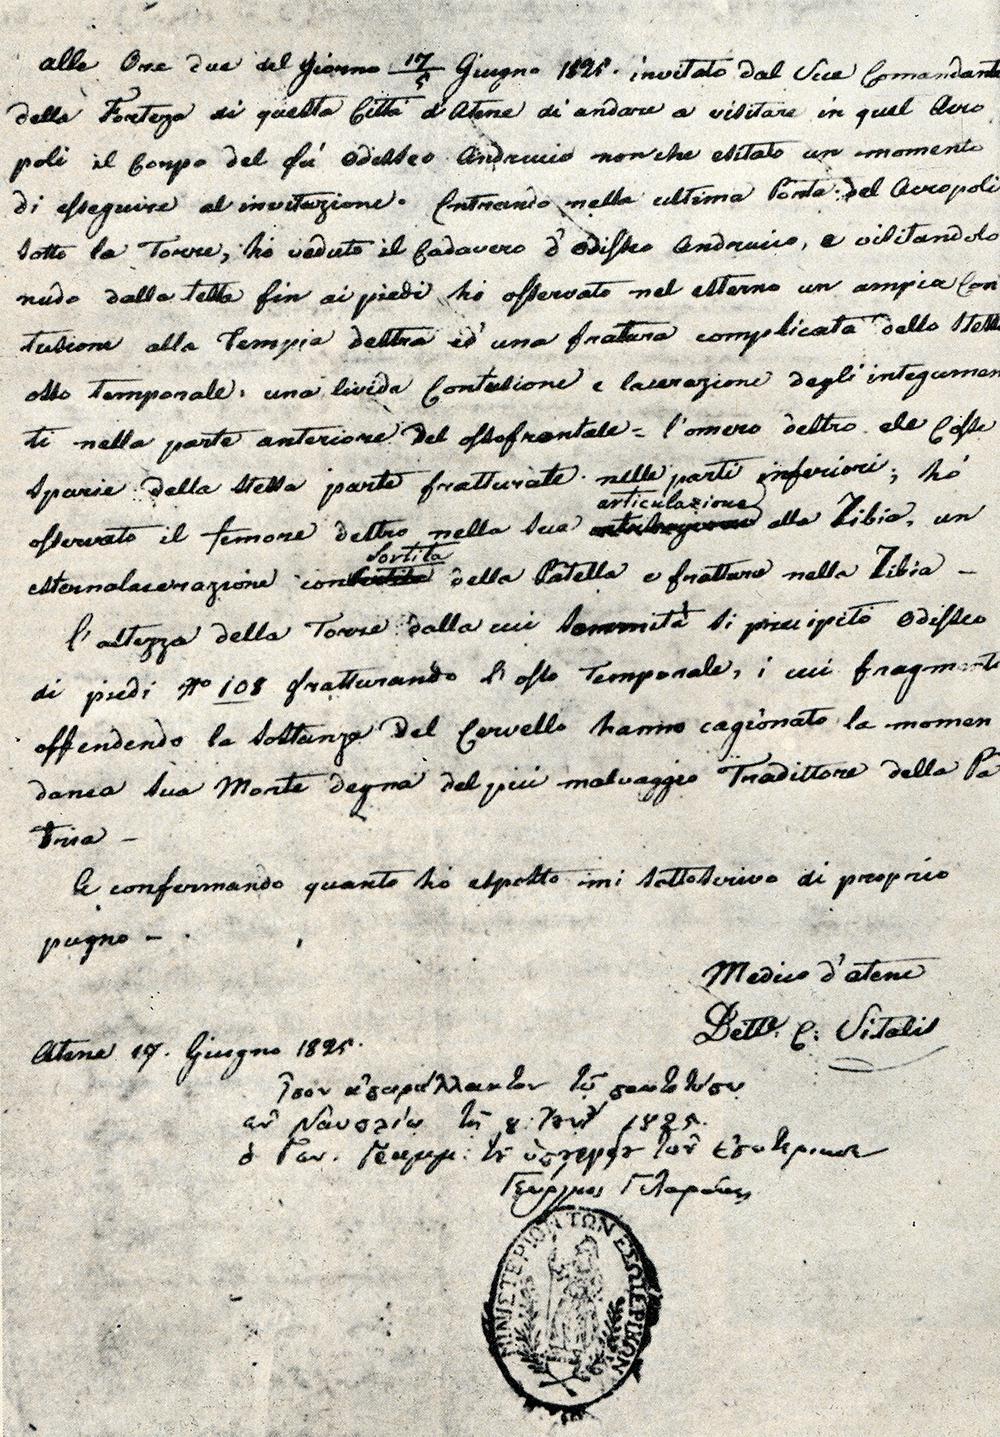 alle Ore due del Giorno 17/5 Giugno 1825. invitato dal Vice Comandante
della Forteza di questa Città d'Atene di andare a visitare in quel Acro
poli il Corpo del fu' Odisseo Andruccio non che esitato un momento
di esseguire al invitazione. Entrando nella ultima Porta del Acropoli
sotto la Torre, ho veduto il Cadavero d'Odisseo Andruccio, e visitandolo
nudo dalla testa fin ai piedi ho osservato nel esterno un ampia Con
tusione alla Tempia destra ed' una fratura complicata dello stesso
osso temporale, una livida Contusione e lacerazione degli integumen
ti nella parte anteriore del osso frontale = l'omero destro e le Coste
sparie della stessa parte fratturate nelle parti inferiori; ho
articulazione
osservato il femore destro nella sua alla Tibia, un
sortita
esterna lacerazione con della Patella e fratture nella Tibia –
l'altezza della Torre dalla cui sommità si precipitò Odisseo
di piedi No 108 fratturando l'osso Temporale, i cui fragmenti
offendendo la sostanza del Cervello hanno cagionato la momen
danea sua Morte degna del più malvaggio Tradittore della Pa
tria –
E confermando quanto ho esposto mi sottoscrivo di proprio
pugno –
Medico d'atene
Dettr. C: Vitalis
Atene 17. Giugno 1825.
Ἴσον ἀπαράλλακτον τῷ πρωτοτύπῳ
ἐν Ναυπλίῳ τῇ 8: 1825.
ὁ Γεν. Γραμμ: τῶν Ἐσωτερικῶν
Γεώργιος Γλαράκης
ΜΙΝΙΣΤΕΡΙΟΝ ΤΩΝ ΕΣΩΤΕΡΙΚΩΝ